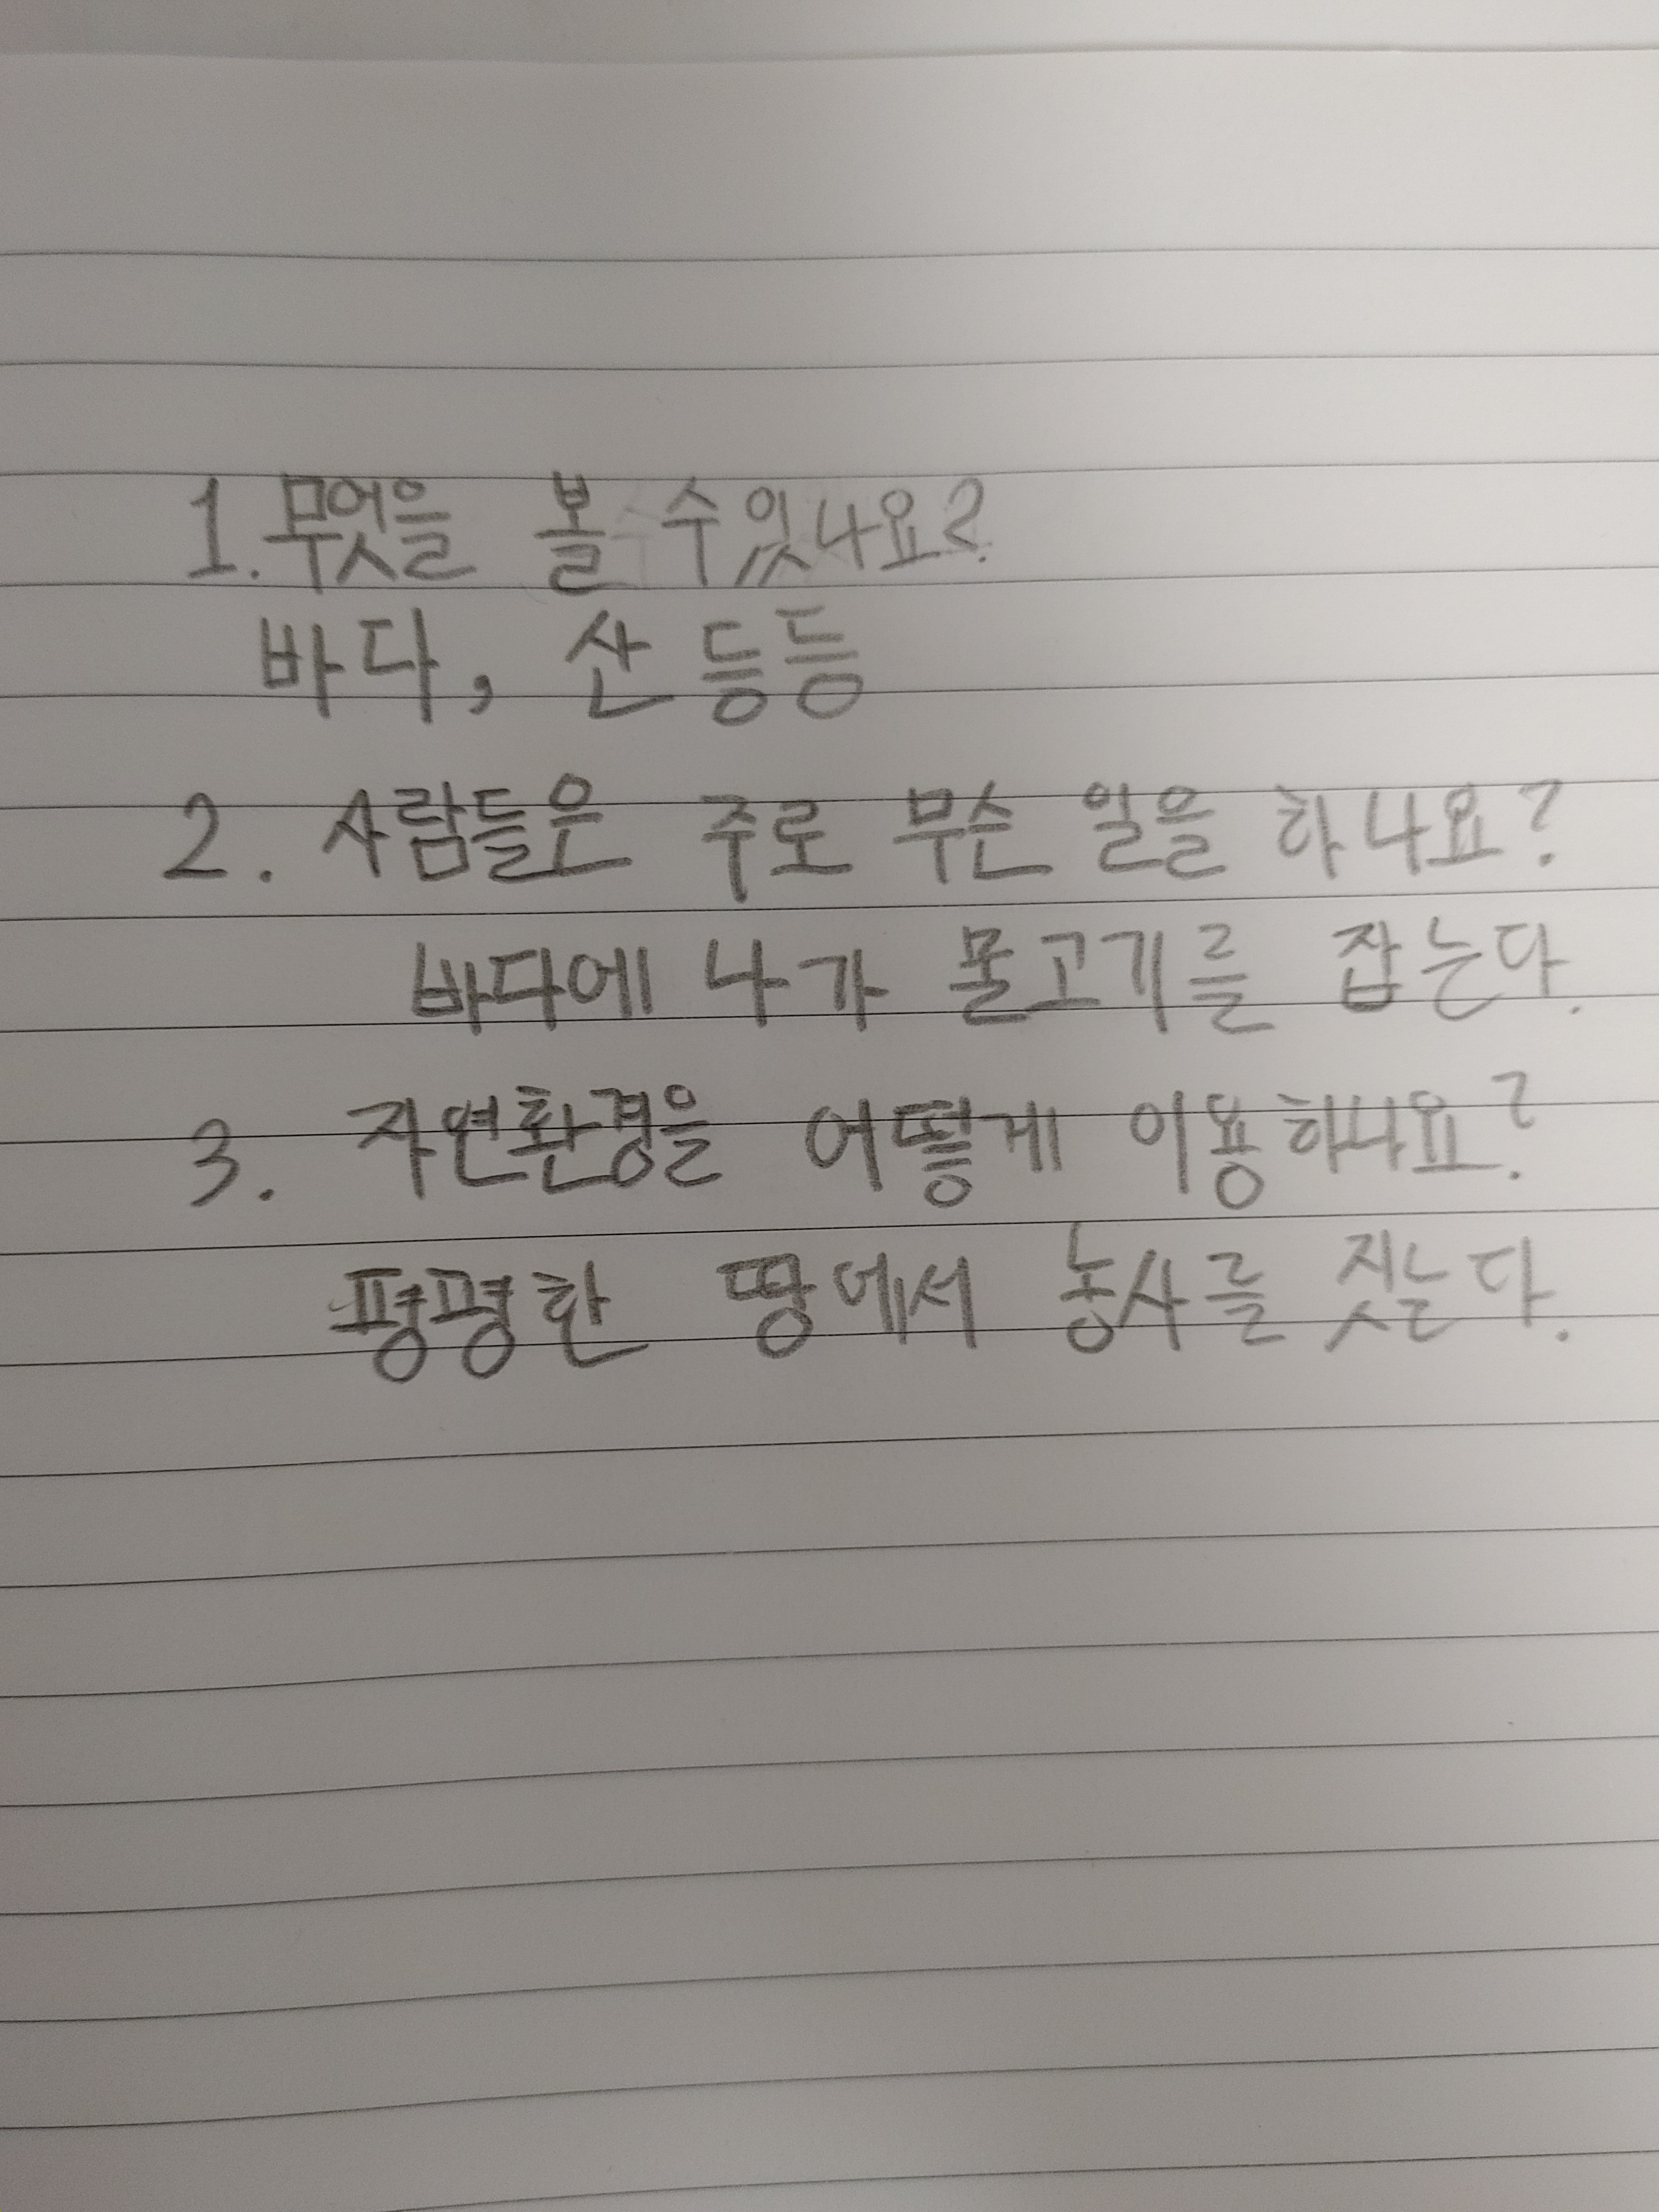 1. 무엇을 볼 수있나요?
바다, 산 등등
2. 사람들은 주로 무슨 일을 하나요?
바다에 나가 물고기를 잡는다.
3. 자연환경을 어떻게 이용하나요?
평평한 땅에서 농사를 짓는다.